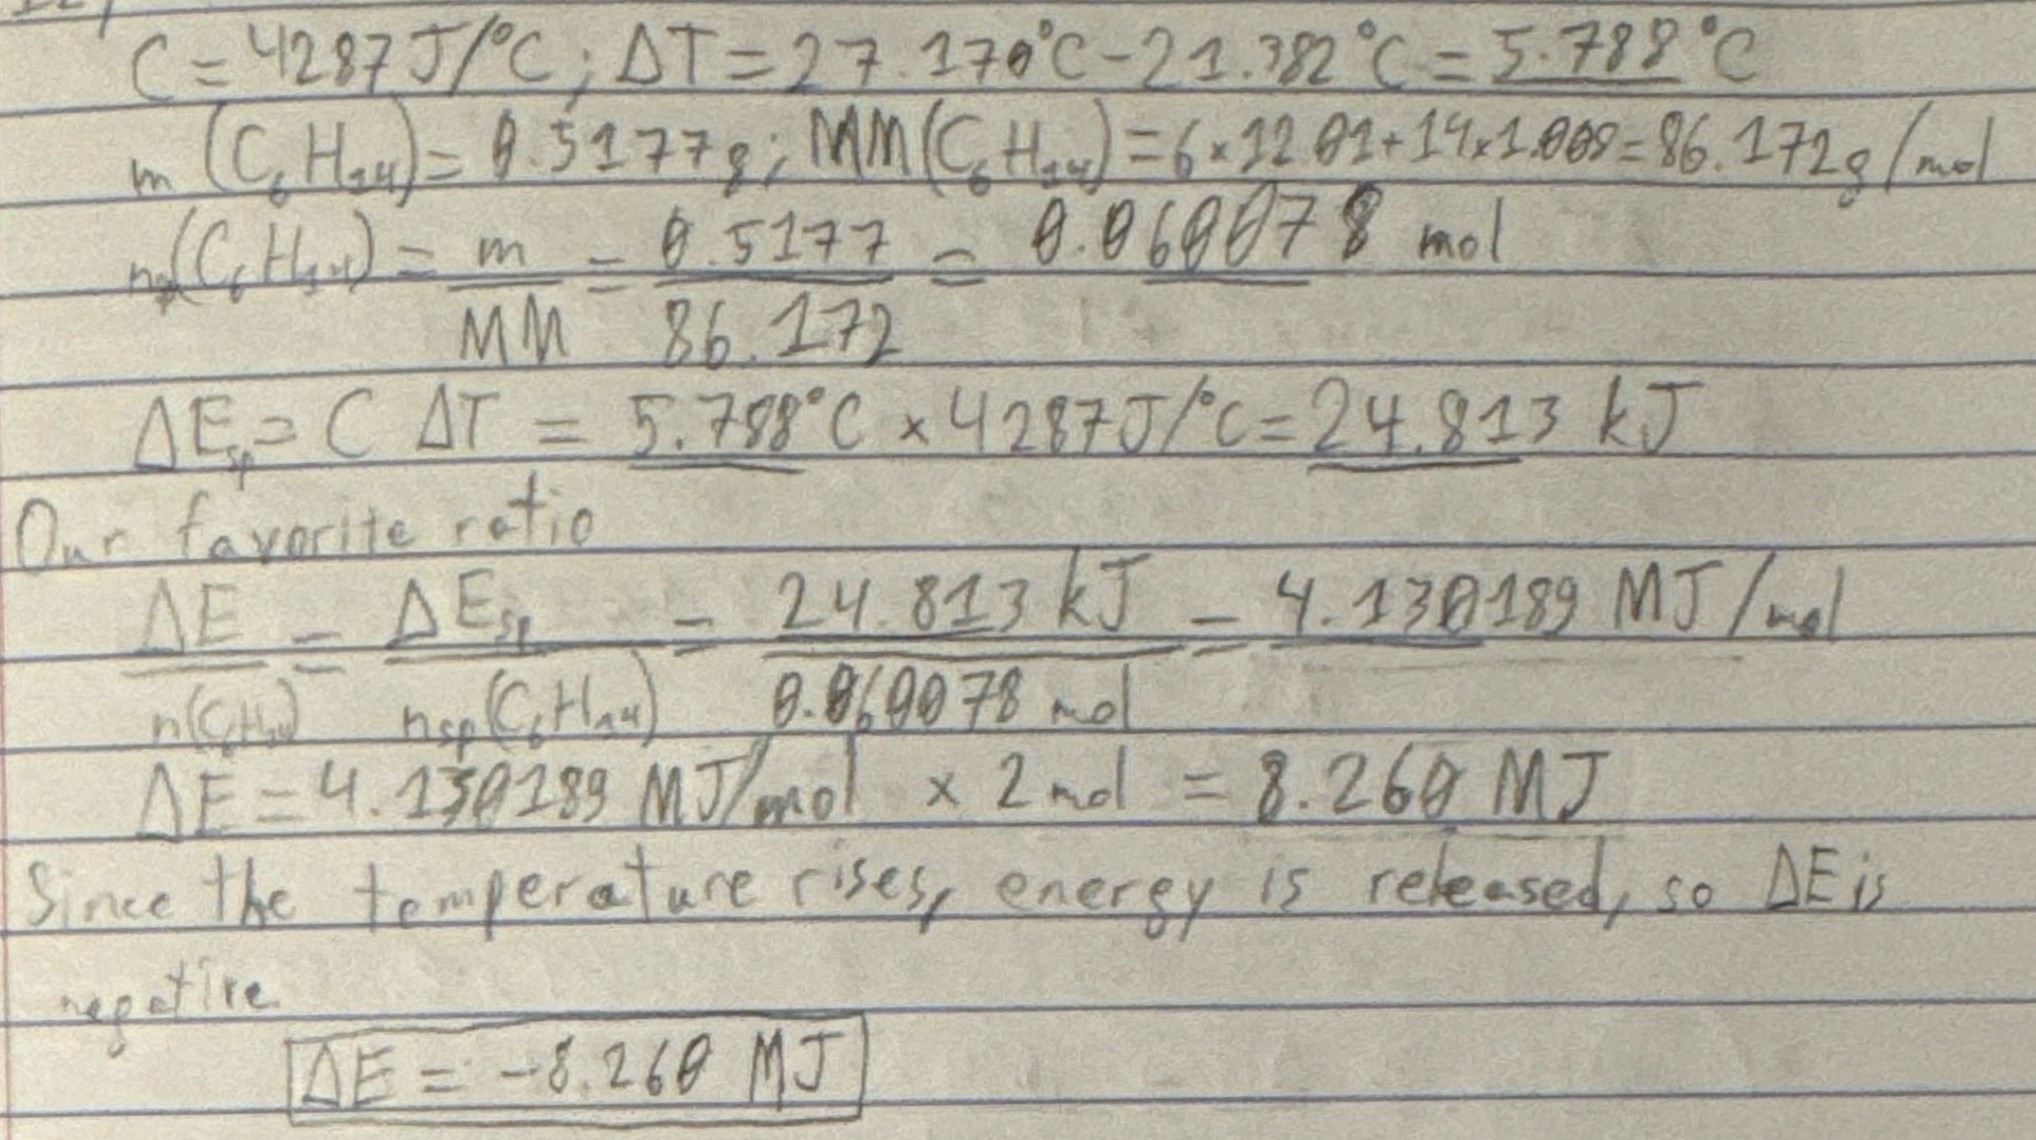 C = 4287 J/°C; ΔT = 27.170°C - 21.382°C = 5.788°C
m(C₆H₁₄) = 0.5177g; MM(C₆H₁₄) = 6×12.01 + 14×1.008 = 86.172g/mol
n(C₆H₁₄) = m/MM = 0.5177/86.172 = 0.060078 mol
ΔEsp = C ΔT = 5.788°C × 4287J/°C = 24.813 kJ
Our favorite ratio
ΔE/n(C₆H₁₄) = ΔEsp/nsp(C₆H₁₄) = 24.813 kJ/0.060078 mol = 4.130189 MJ/mol
ΔE = 4.130189 MJ/mol × 2 mol = 8.260 MJ
Since the temperature rises, energy is released, so ΔE is
negative
ΔE = -8.260 MJ